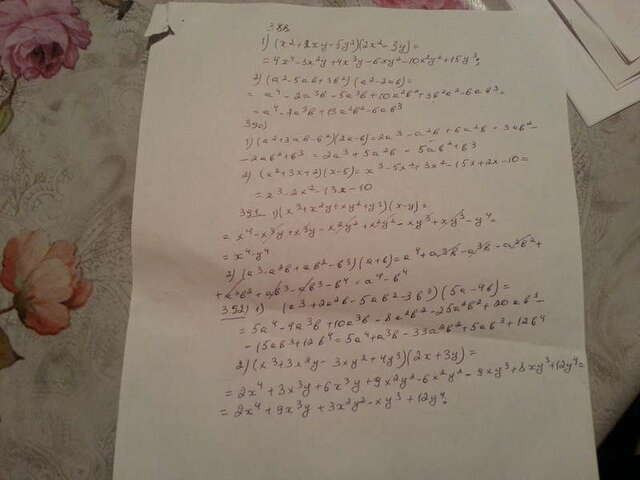 388
1) (x²+2xy-5y²)(2x²-3y)=
= 4x⁴-3x²y+4x³y-6xy²-10x²y²+15y³;
2) (a²-5ab+3b²)(a²-2ab)=
= a⁴-2a³b-5a³b+10a²b²+3b²a²-6ab³=
= a⁴-7a³b+13a²b²-6ab³
390
1) (a²+3ab-b²)(2a-b)=2a³-a²b+6a²b-3ab²-
-2ab²+b³=2a³+5a²b-5ab²+b³
2) (x²+3x+2)(x-5)=x³-5x²+3x²-15x+2x-10=
= x³-2x²-13x-10
391 1) (x³+x²y+xy²+y³)(x-y)=
= x⁴-x³y+x³y-x²y²+x²y²-xy³+xy³-y⁴=
= x⁴-y⁴
2) (a³-a²b+ab²-b³)(a+b)=a⁴+a³b-a³b-a²b²+
+a²b²+ab³-ab³-b⁴=a⁴-b⁴
392) 1) (a³+2a²b-5ab²-3b³)(5a-4b)=
= 5a⁴-4a³b+10a³b-8a²b²-25a²b²+20ab³-
-15ab³+12b⁴=5a⁴+a³b-33a²b²+5ab³+12b⁴
2) (x³+3x²y-3xy²+4y³)(2x+3y)=
= 2x⁴+3x³y+6x³y+9x²y²-6x²y²-9xy³+8xy³+12y⁴=
= 2x⁴+9x³y+3x²y²-xy³+12y⁴.